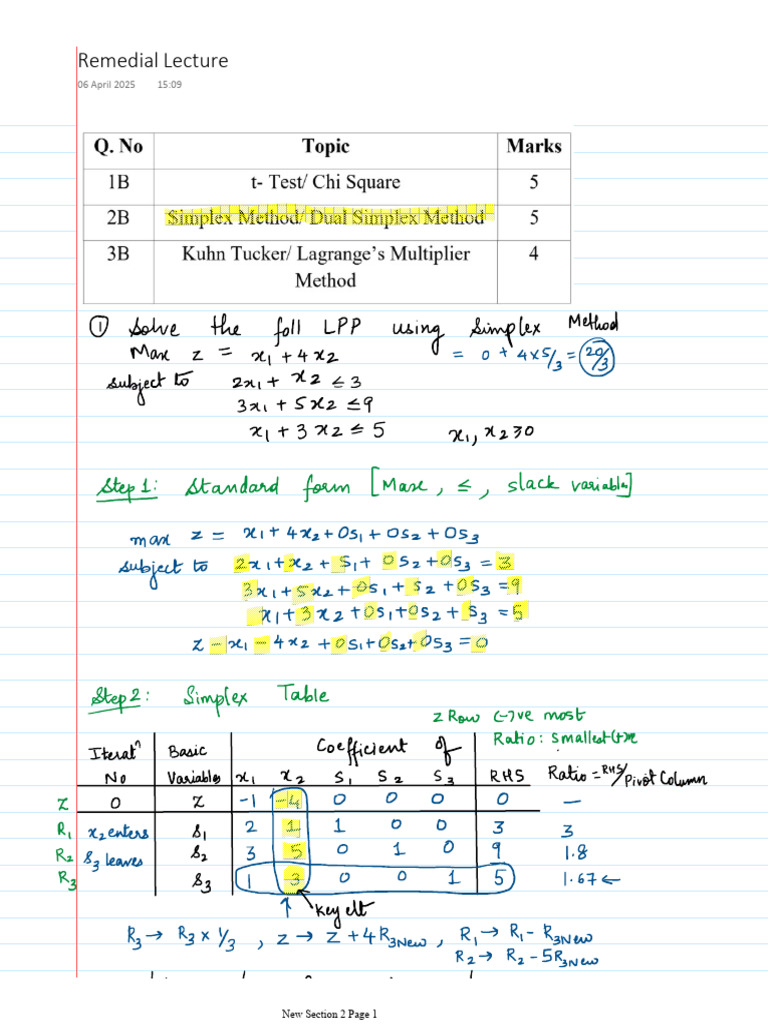 Remedial Lecture
06 April 2025 15:09
Q. No Topic Marks
1B t- Test/ Chi Square 5
2B Simplex Method/ Dual Simplex Method 5
3B Kuhn Tucker/ Lagrange's Multiplier Method 4
① Solve the foll LPP using Simplex Method
Max z = x₁ + 4x₂ = 0 + 4×5/3 = 20/3
subject to 2x₁ + x₂ ≤ 3
3x₁ + 5x₂ ≤ 9
x₁ + 3x₂ ≤ 5 x₁, x₂ ≥ 0
Step 1: Standard form [Max, ≤, slack variable]
max z = x₁ + 4x₂ + 0s₁ + 0s₂ + 0s₃
subject to 2x₁ + x₂ + s₁ + 0s₂ + 0s₃ = 3
3x₁ + 5x₂ + 0s₁ + s₂ + 0s₃ = 9
x₁ + 3x₂ + 0s₁ + 0s₂ + s₃ = 5
z - x₁ - 4x₂ + 0s₁ + 0s₂ + 0s₃ = 0
Step 2: Simplex Table
z Row (-)ve most
Ratio: smallest (+)ve
Iteratⁿ Basic Coefficient of
No Variables x₁ x₂ s₁ s₂ s₃ RHS Ratio = RHS/Pivot Column
z 0 z -1 -4 0 0 0 0 —
R₁ x₂ enters s₁ 2 1 1 0 0 3 3
R₂ s₃ leaves s₂ 3 5 0 1 0 9 1.8
R₃ s₃ 1 3 0 0 1 5 1.67 ←
↑ Key elt
R₃ → R₃ × 1/3 , z → z + 4R₃New , R₁ → R₁ - R₃New
R₂ → R₂ - 5R₃New
New Section 2 Page 1